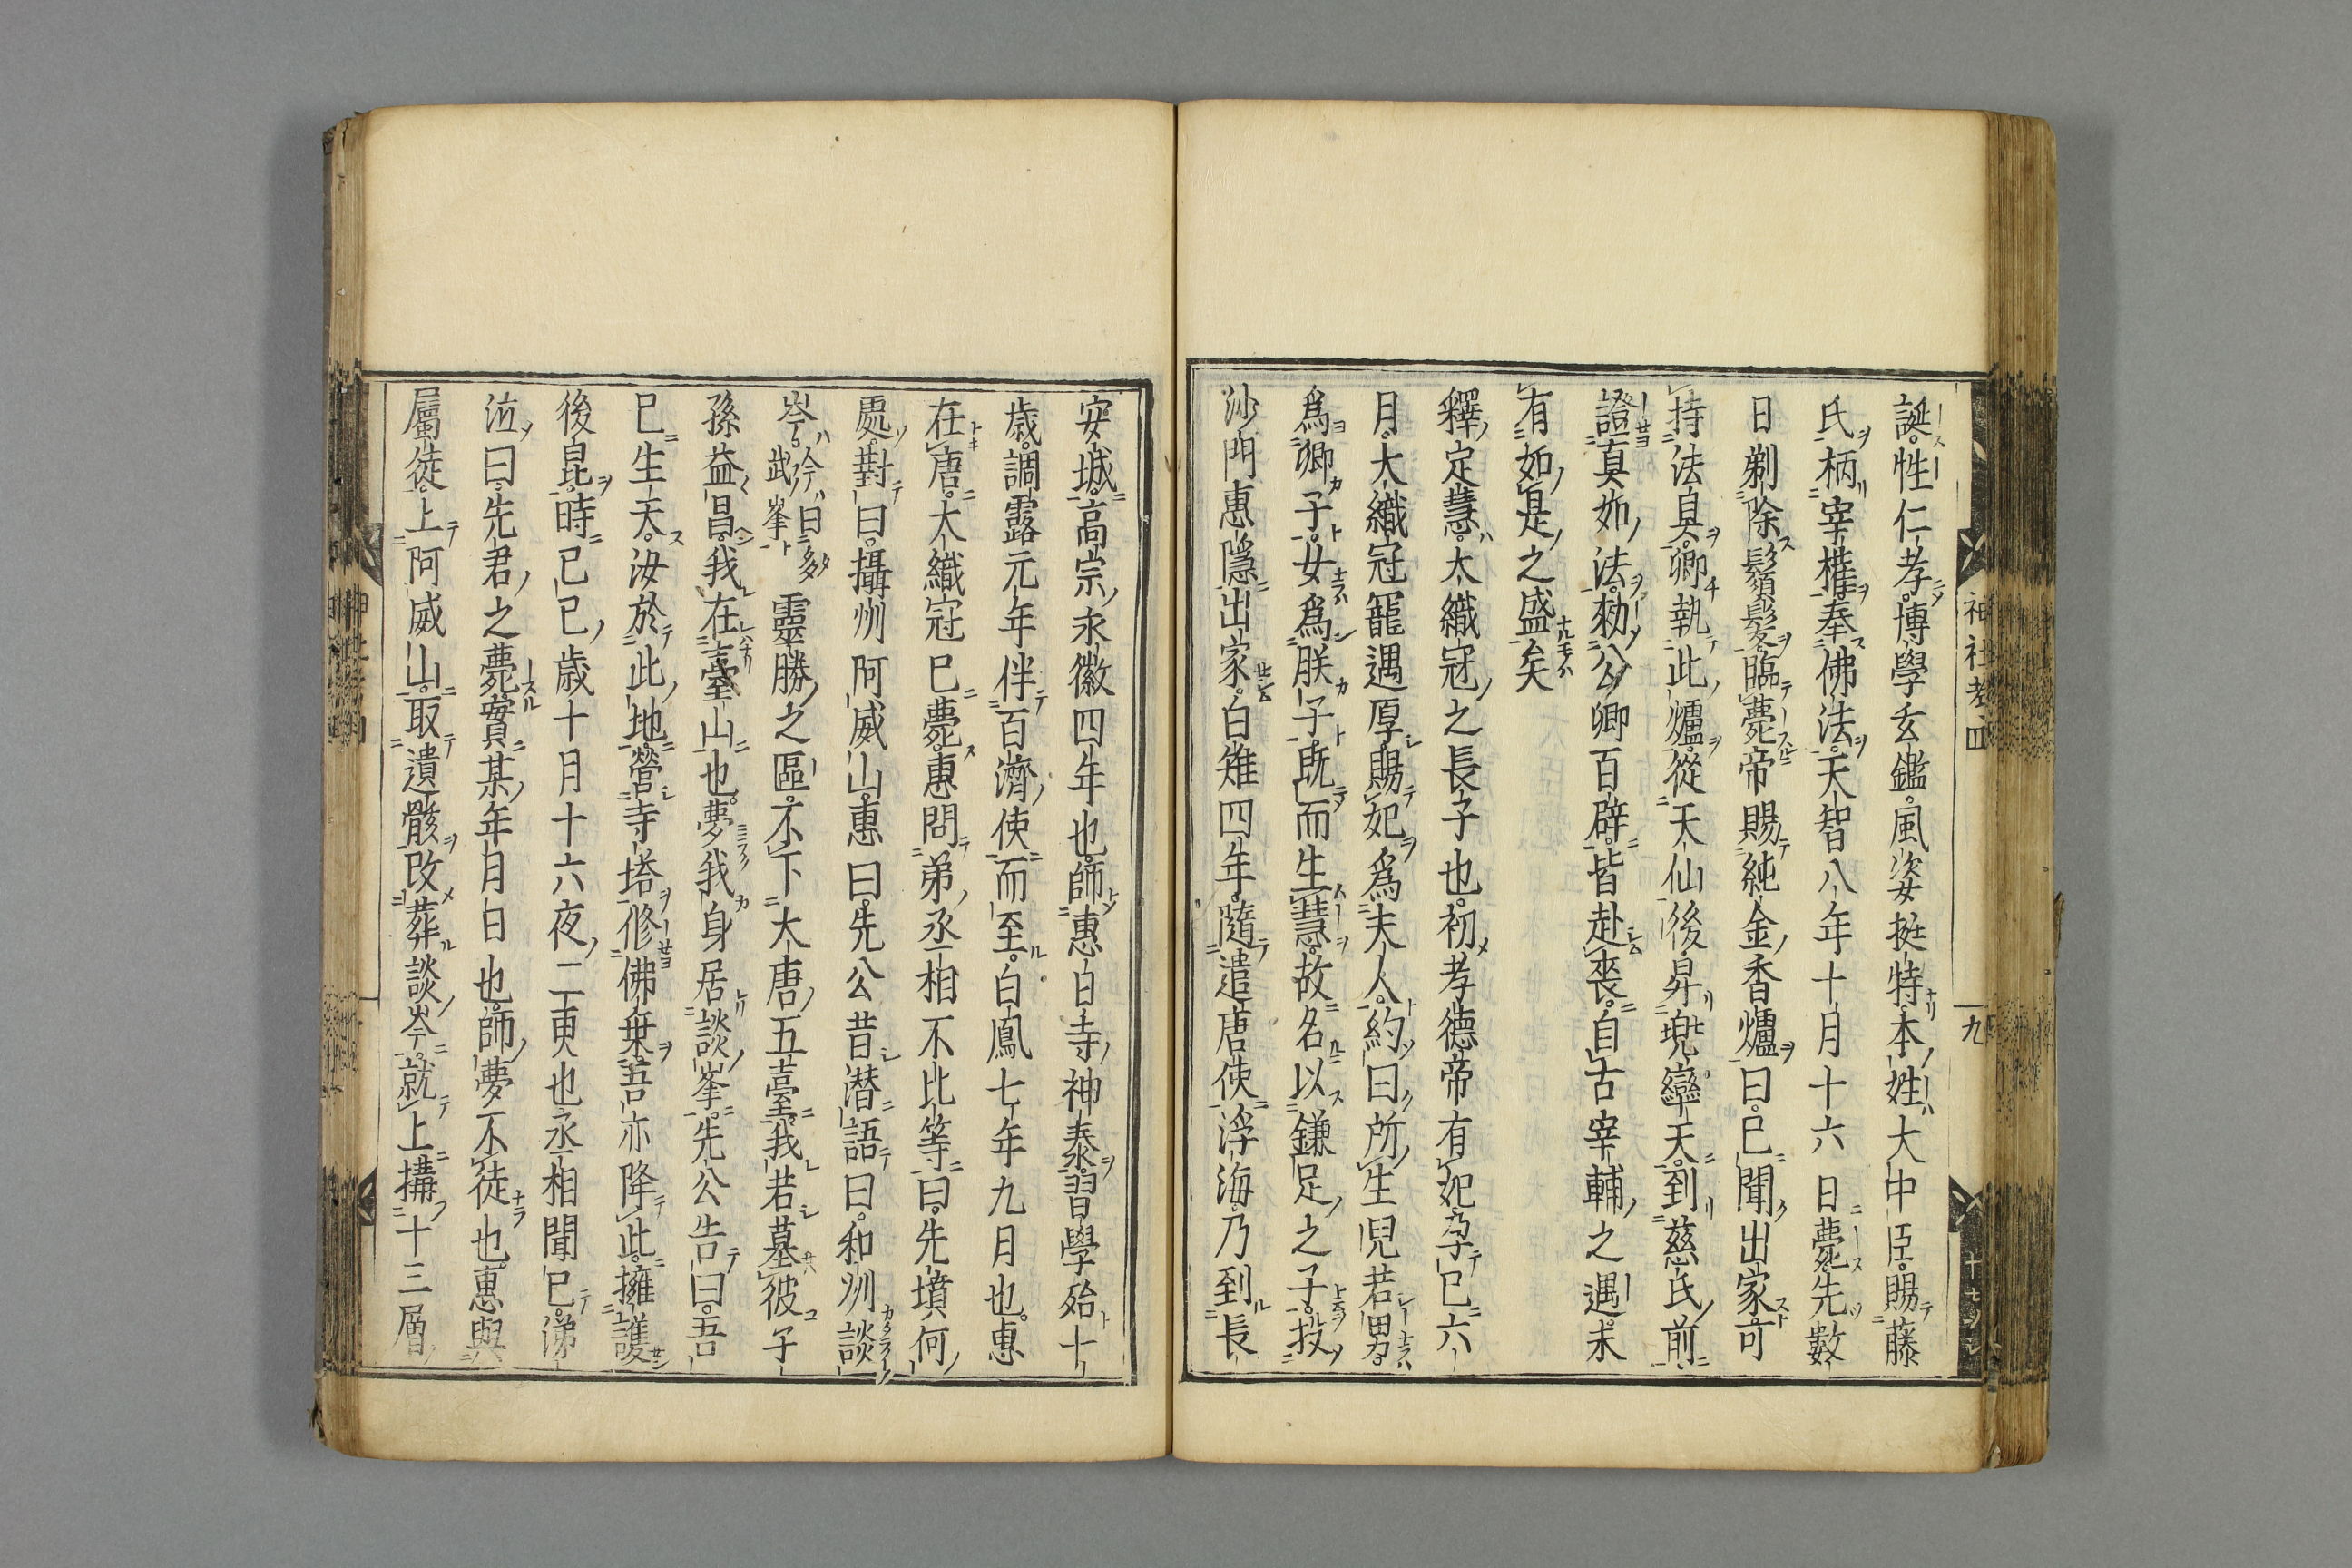 誕性仁孝博學玄鑑風姿挺特本姓大中臣賜藤
氏柄宰權奉佛法天智八年十月十六日薨先數
日剃除鬚髮臨薨帝賜純金香爐曰已聞出家可
持法具卿執此爐從天仙後昇兜率天到慈氏前
證真如法勑公卿百辟皆赴喪自古宰輔之遇未
有如是之盛矣
釋定慧大織冠之長子也初孝德帝有妃孕已六
月大織冠寵遇厚賜妃爲夫人約曰所生兒若男
爲卿子女爲朕子既而生慧故名以鎌足之子投
沙門惠隱出家白雉四年隨遣唐使浮海乃到長
神社考四
九
安城高宗永徽四年也師惠日寺神泰習學殆十
歲調露元年伴百濟使而至白鳳七年九月也惠
在唐大織冠已薨惠問弟丞相不比等曰先墳何
處對曰攝州阿威山惠曰先公昔潛語曰和州談
岑今曰多武峯靈勝之區不下大唐五臺我若墓彼子
孫益昌我在臺山也夢我身居談峯先公告曰吾
已生天汝於此地營寺塔修佛乗吾亦降此擁護
後昆時已巳歲十月十六夜二更也丞相聞已涕
泣曰先君之薨實某年月日也師夢不徒也惠與
屬徒上阿威山取遺骸改葬談岑就上搆十三層